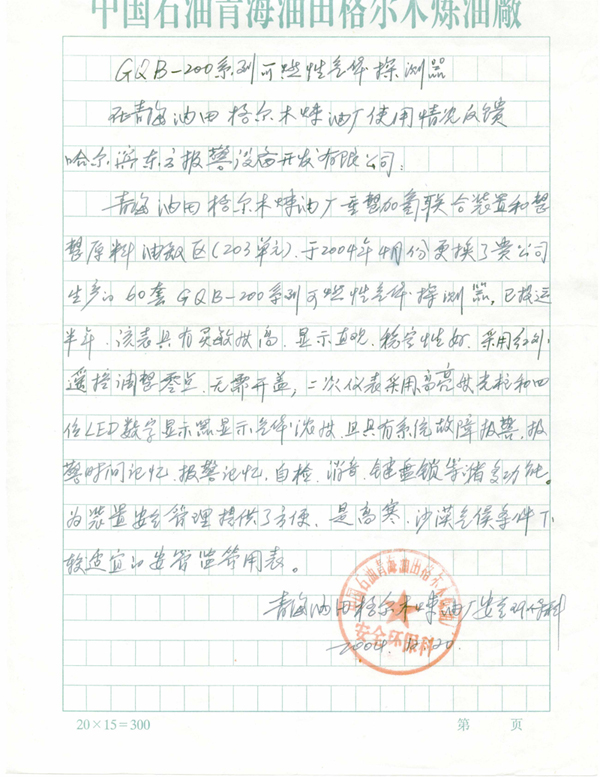 中国石油青海油田格尔木炼油廠
GQB-200系列可燃性气体探测器
在青海油田格尔木炼油厂使用情况反馈
哈尔滨东方报警设备开发有限公司:
青海油田格尔木炼油厂重整加氢联合装置和重
整原料油罐区(203单元)、于2004年4月份更换了贵公司
生产的60套GQB-200系列可燃性气体探测器,已投运
半年、该表具有灵敏度高、显示直观、稳定性好、采用红外
遥控调整零点、无需开盖,二次仪表采用高亮度光柱和四
位LED数字显示器显示气体浓度、且具有系统故障报警、报
警时间记忆、报警记忆、自检、消音、键盘锁等诸多功能。
为装置安全管理提供了方便、是高寒、沙漠气候条件下
较适宜的安管监管用表。
青海油田格尔木炼油厂安全环保科
2004.12.20
中国石油青海油田格尔木炼油厂
安全环保科
20×15=300
第 页